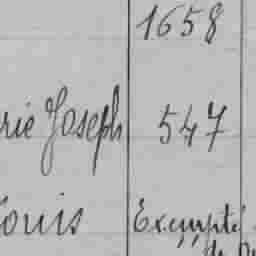 1658
rie Joseph 547
ouis Exempté
de